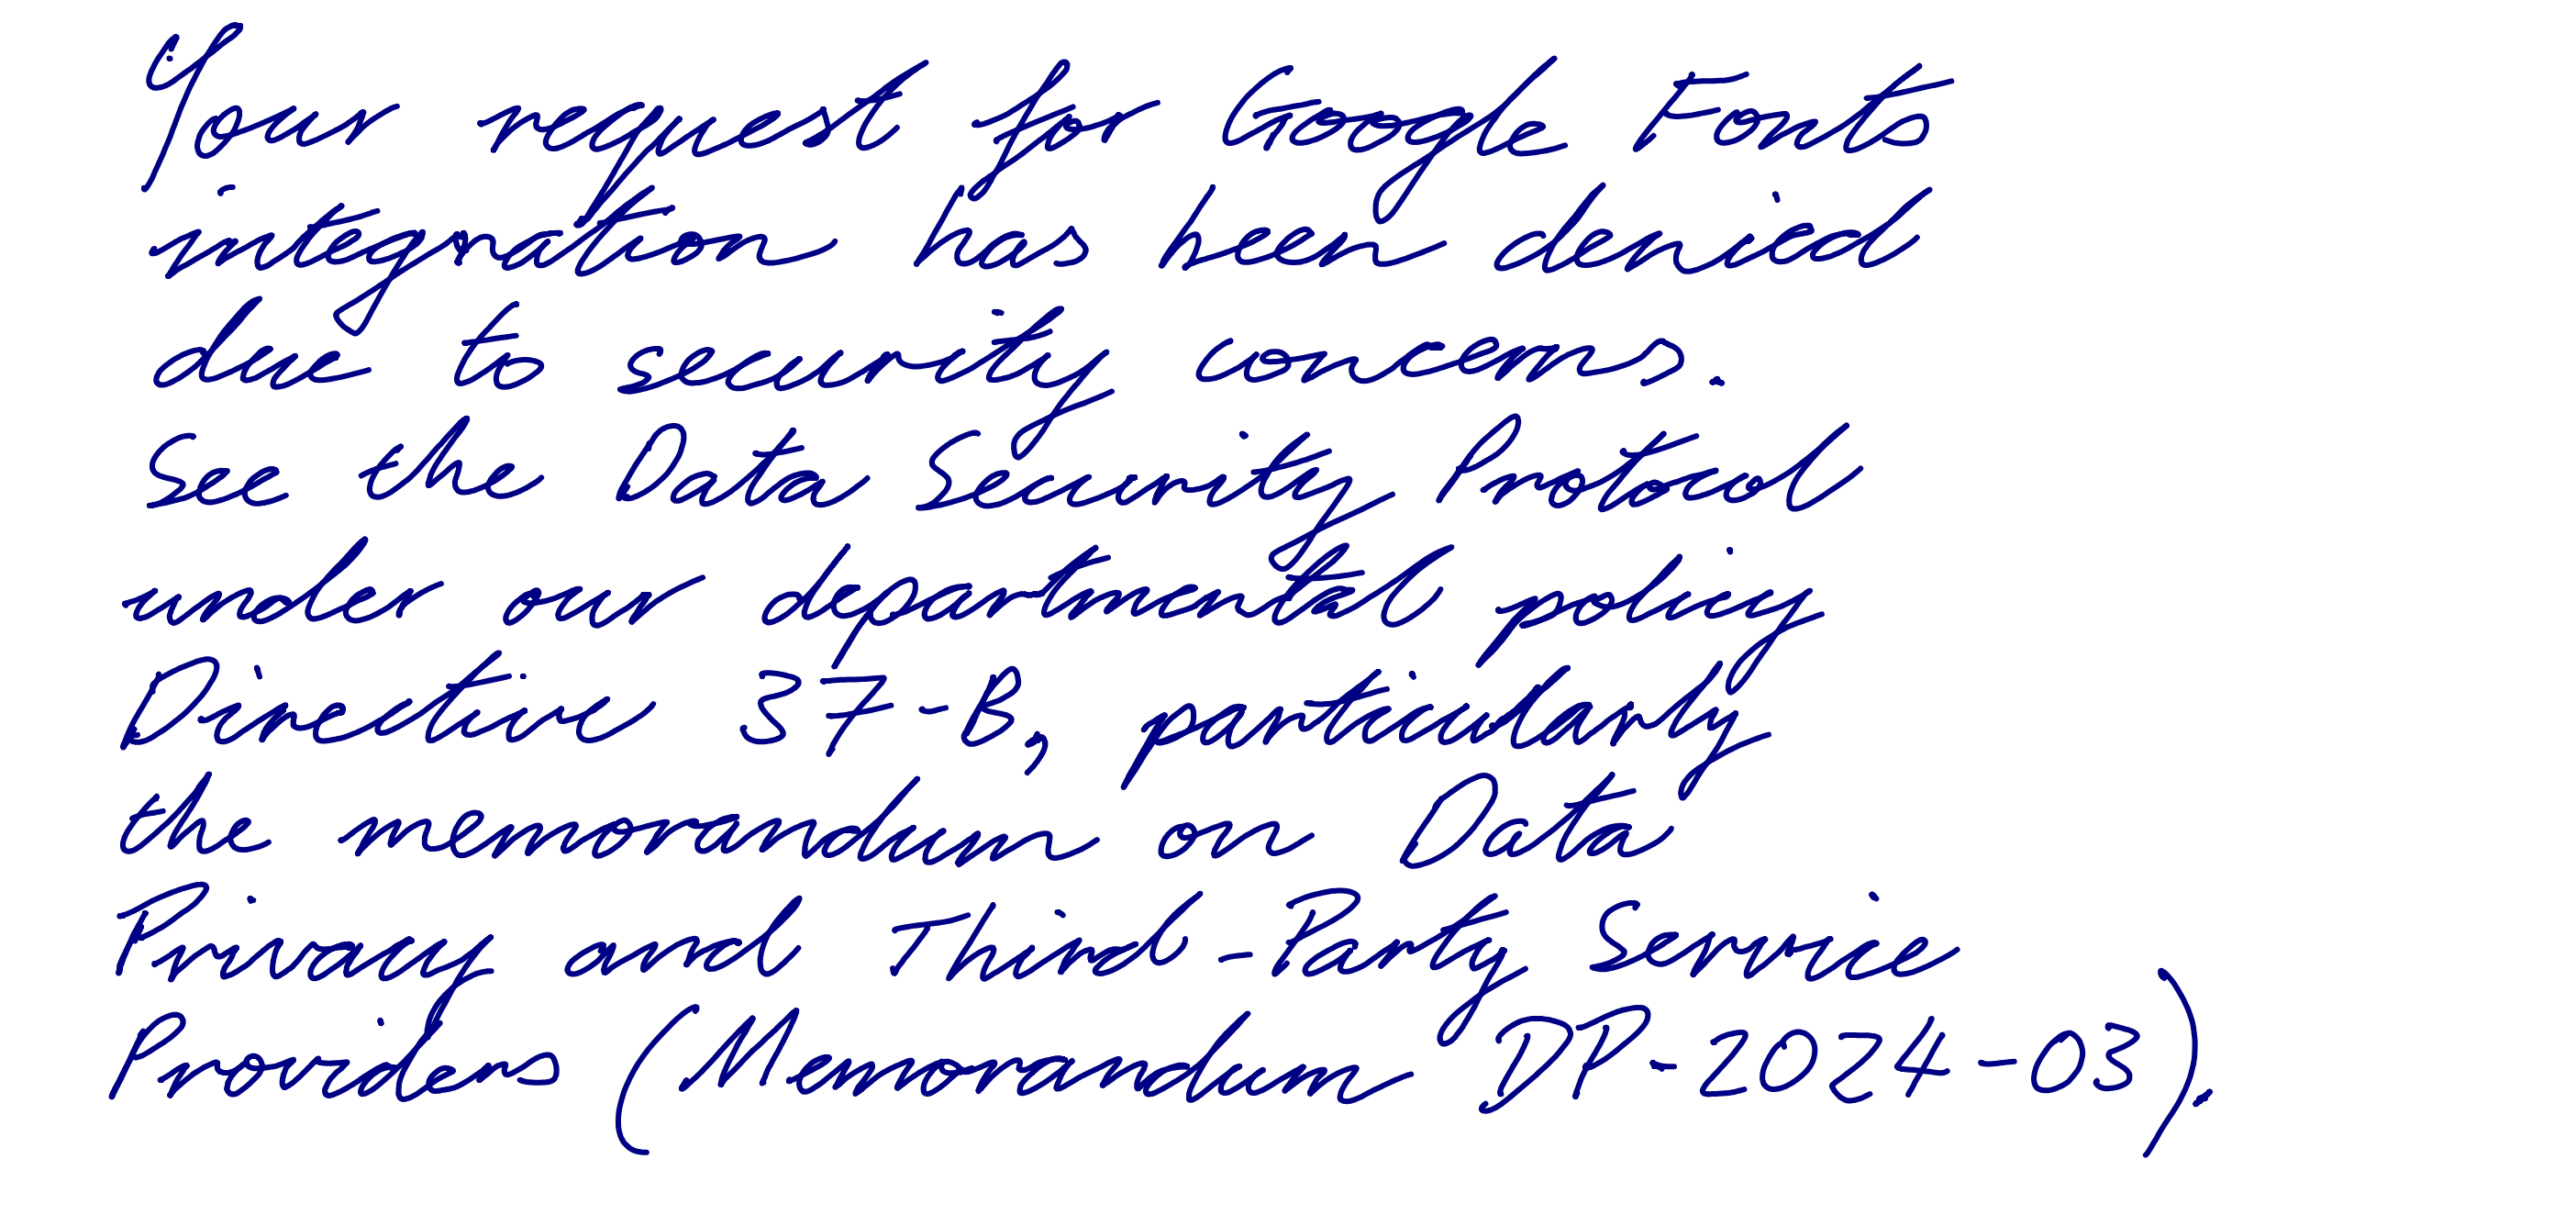 Your request for Google Fonts
integration has been denied
due to security concerns.
See the Data Security Protocol
under our departmental policy
Directive 37-B, particularly
the memorandum on Data
Privacy and Third-Party Service
Providers (Memorandum DP-2024-03).